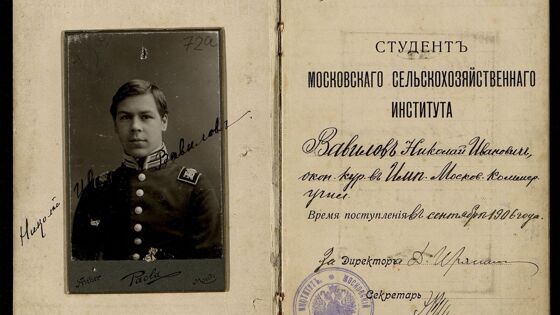 72а
Николай Ивановичъ Вавиловъ
Paola
СТУДЕНТЪ
МОСКОВСКАГО СЕЛЬСКОХОЗЯЙСТВЕННАГО
ИНСТИТУТА
Вавиловъ Николай Ивановичъ,
окон. кур. въ Имп. Москов. Коммер.
учил.
Время поступленія въ сентябрѣ 1906 года.
За Директора Д.
Секретарь
ИНСТИТУТЪ МОСКОВСКІЙ